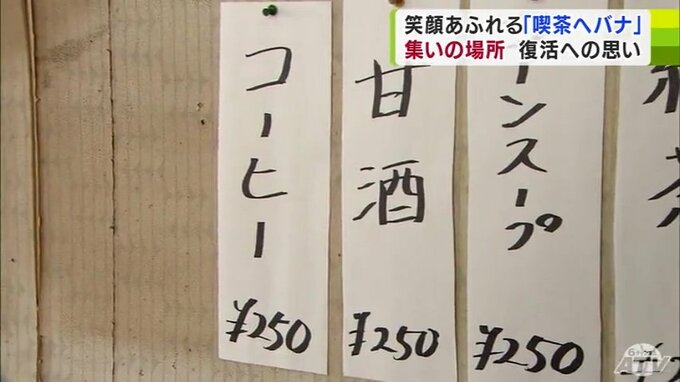 笑顔あふれる「喫茶ヘバナ」
集いの場所 復活への思い
コーヒー
¥250
甘酒
¥250
ーンスープ
¥250
ATV